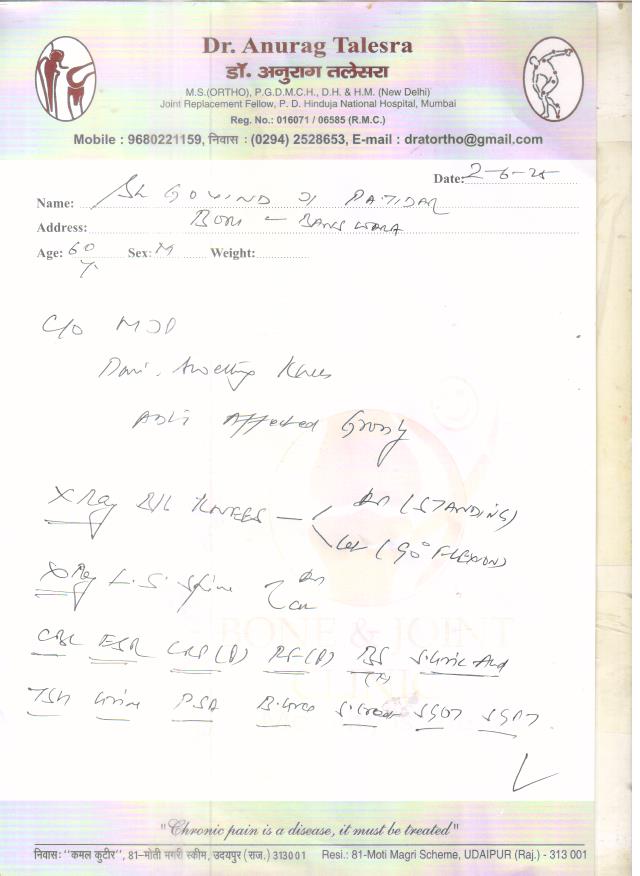 Dr. Anurag Talesra
डॉ. अनुराग तलेसरा
M.S.(ORTHO), P.G.D.M.C.H., D.H. & H.M. (New Delhi)
Joint Replacement Fellow, P. D. Hinduja National Hospital, Mumbai
Reg. No.: 016071 / 06585 (R.M.C.)
Mobile : 9680221159, निवास : (0294) 2528653, E-mail : dratortho@gmail.com
Date: 2-6-25
Name: GOVIND PATIDAR
Address: BORI - BANSWARA
Age: 60 Y Sex: M Weight:
C/O
Swelling Knees
Affected Grossly
X Ray B/L KNEES (STANDING)
Lat (90° FLEXION)
X Ray L.S. Spine
CBC ESR CRP (Q) RF (Q) BS S. Uric Acid
TSH Urine PSA B. Urea S. Creat SGOT SGPT
BONE & JOINT
CLINIC
"Chronic pain is a disease, it must be treated"
निवासः "कमल कुटीर", 81–मोती मगरी स्कीम, उदयपुर (राज.) 313001 Resi.: 81-Moti Magri Scheme, UDAIPUR (Raj.) - 313 001